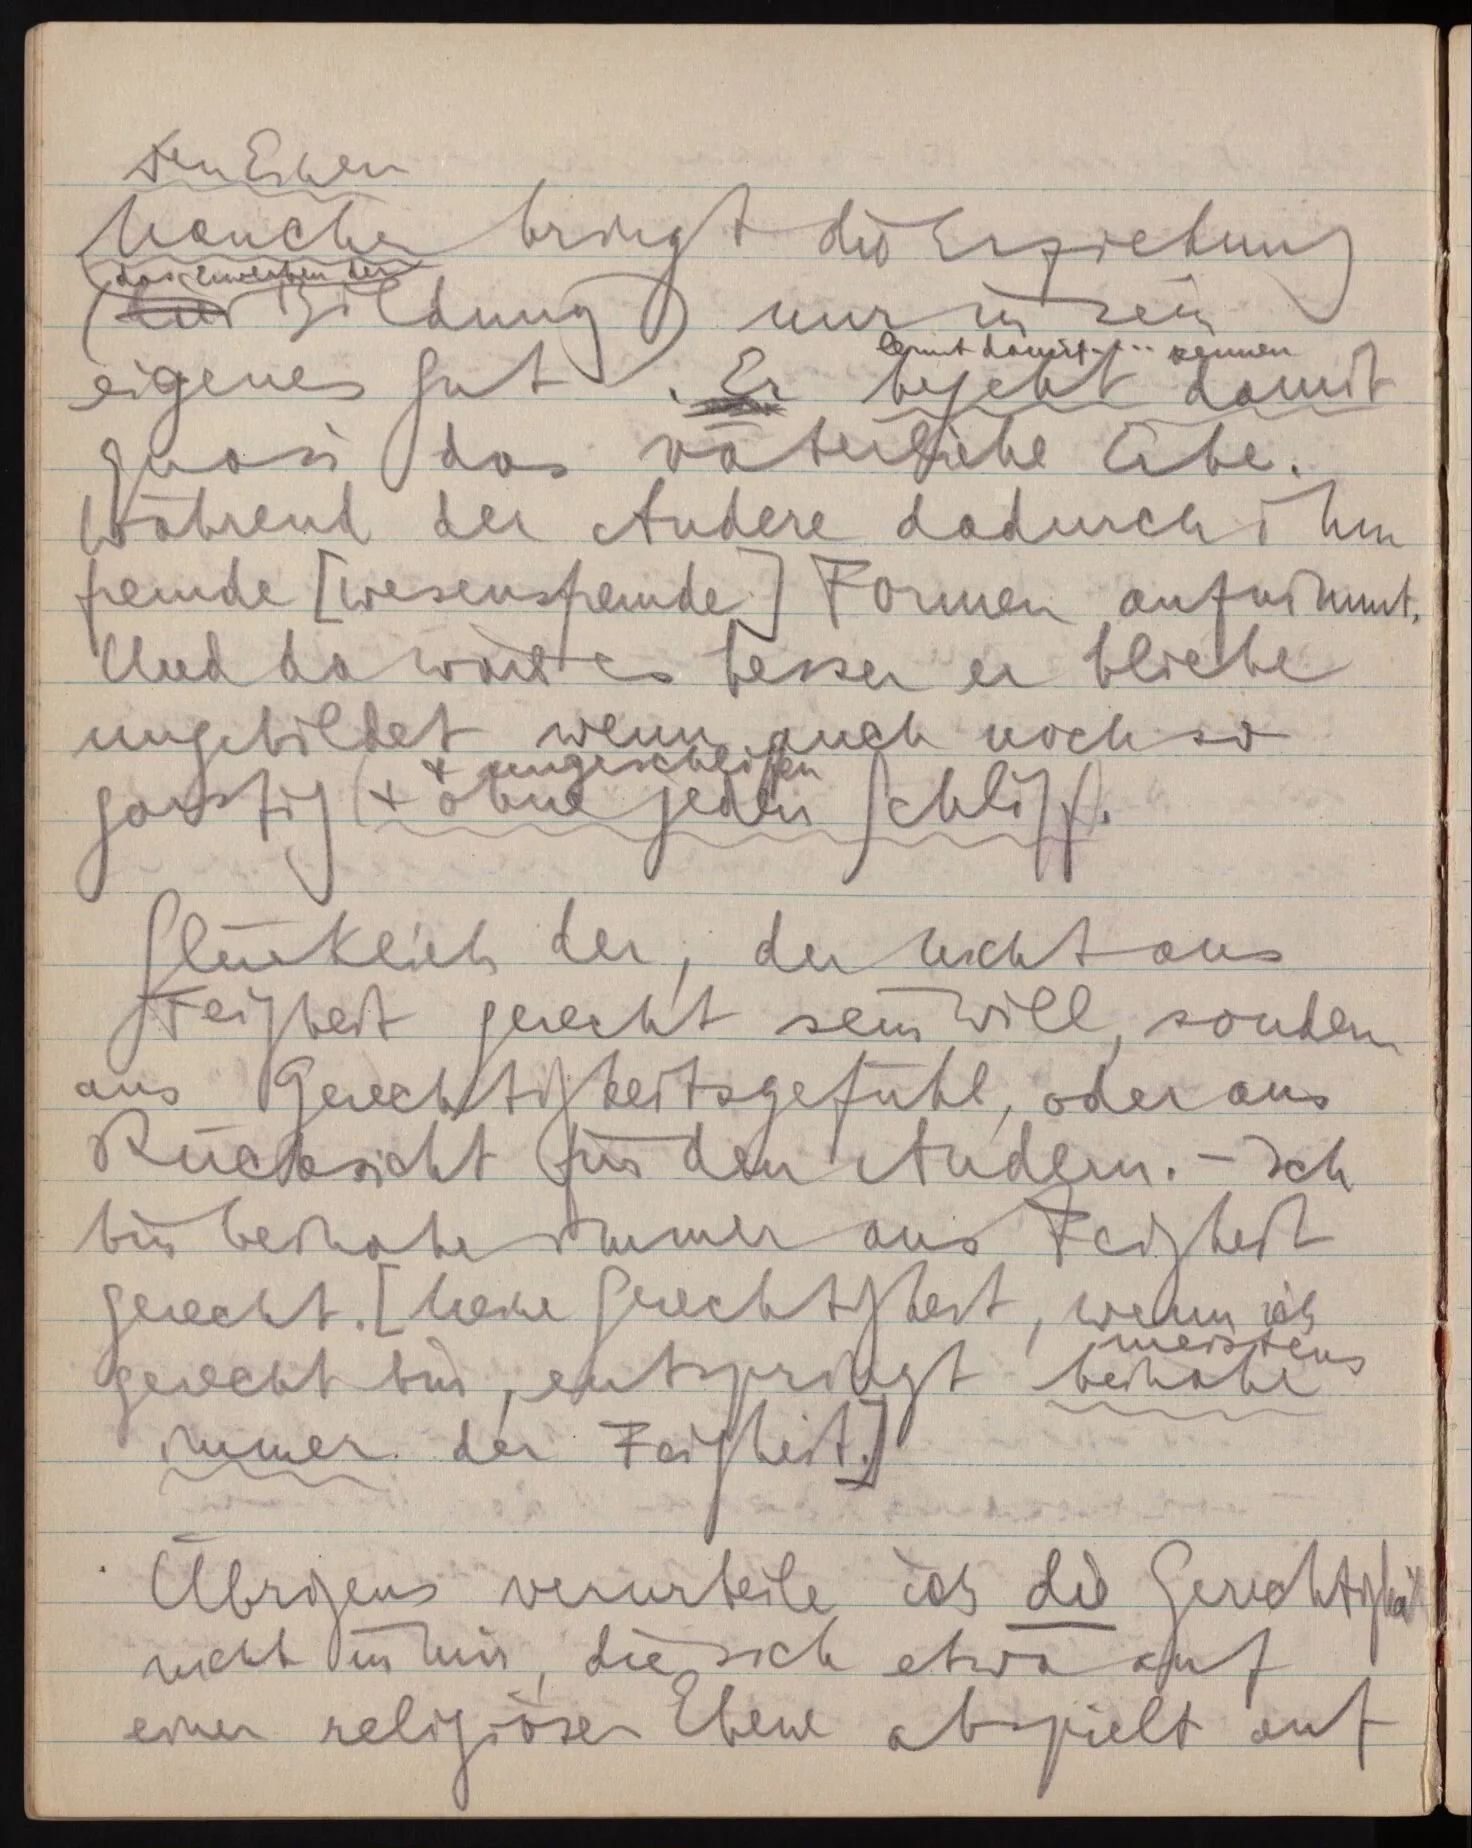 Den Einen
Manchen bringt die Erziehung
das Erwerben der
(die Bildung) nur in sein
eigenes Gut. Er besieht damit
lernt damit ... kennen
quasi das väterliche Erbe.
Während der Andere dadurch ihm
fremde [wesensfremde] Formen aufnimmt.
Und da wäre es besser er bliebe
ungebildet wenn auch noch so
+ ungeschliffen
garstig (+ ohne jeden Schliff).
Glücklich der, der nicht aus
Feigheit gerecht sein will, sondern
aus Gerechtigkeitsgefühl, oder aus
Rücksicht für den Andern. – Ich
bin beinahe immer aus Feigheit
gerecht. [Meine Gerechtigkeit, wenn ich
meistens
gerecht bin, entspringt beinahe
immer der Feigheit.]
Übrigens verurteile ich die Gerechtigkeit
nicht in mir, die sich etwa auf
einer religiösen Ebene abspielt auf